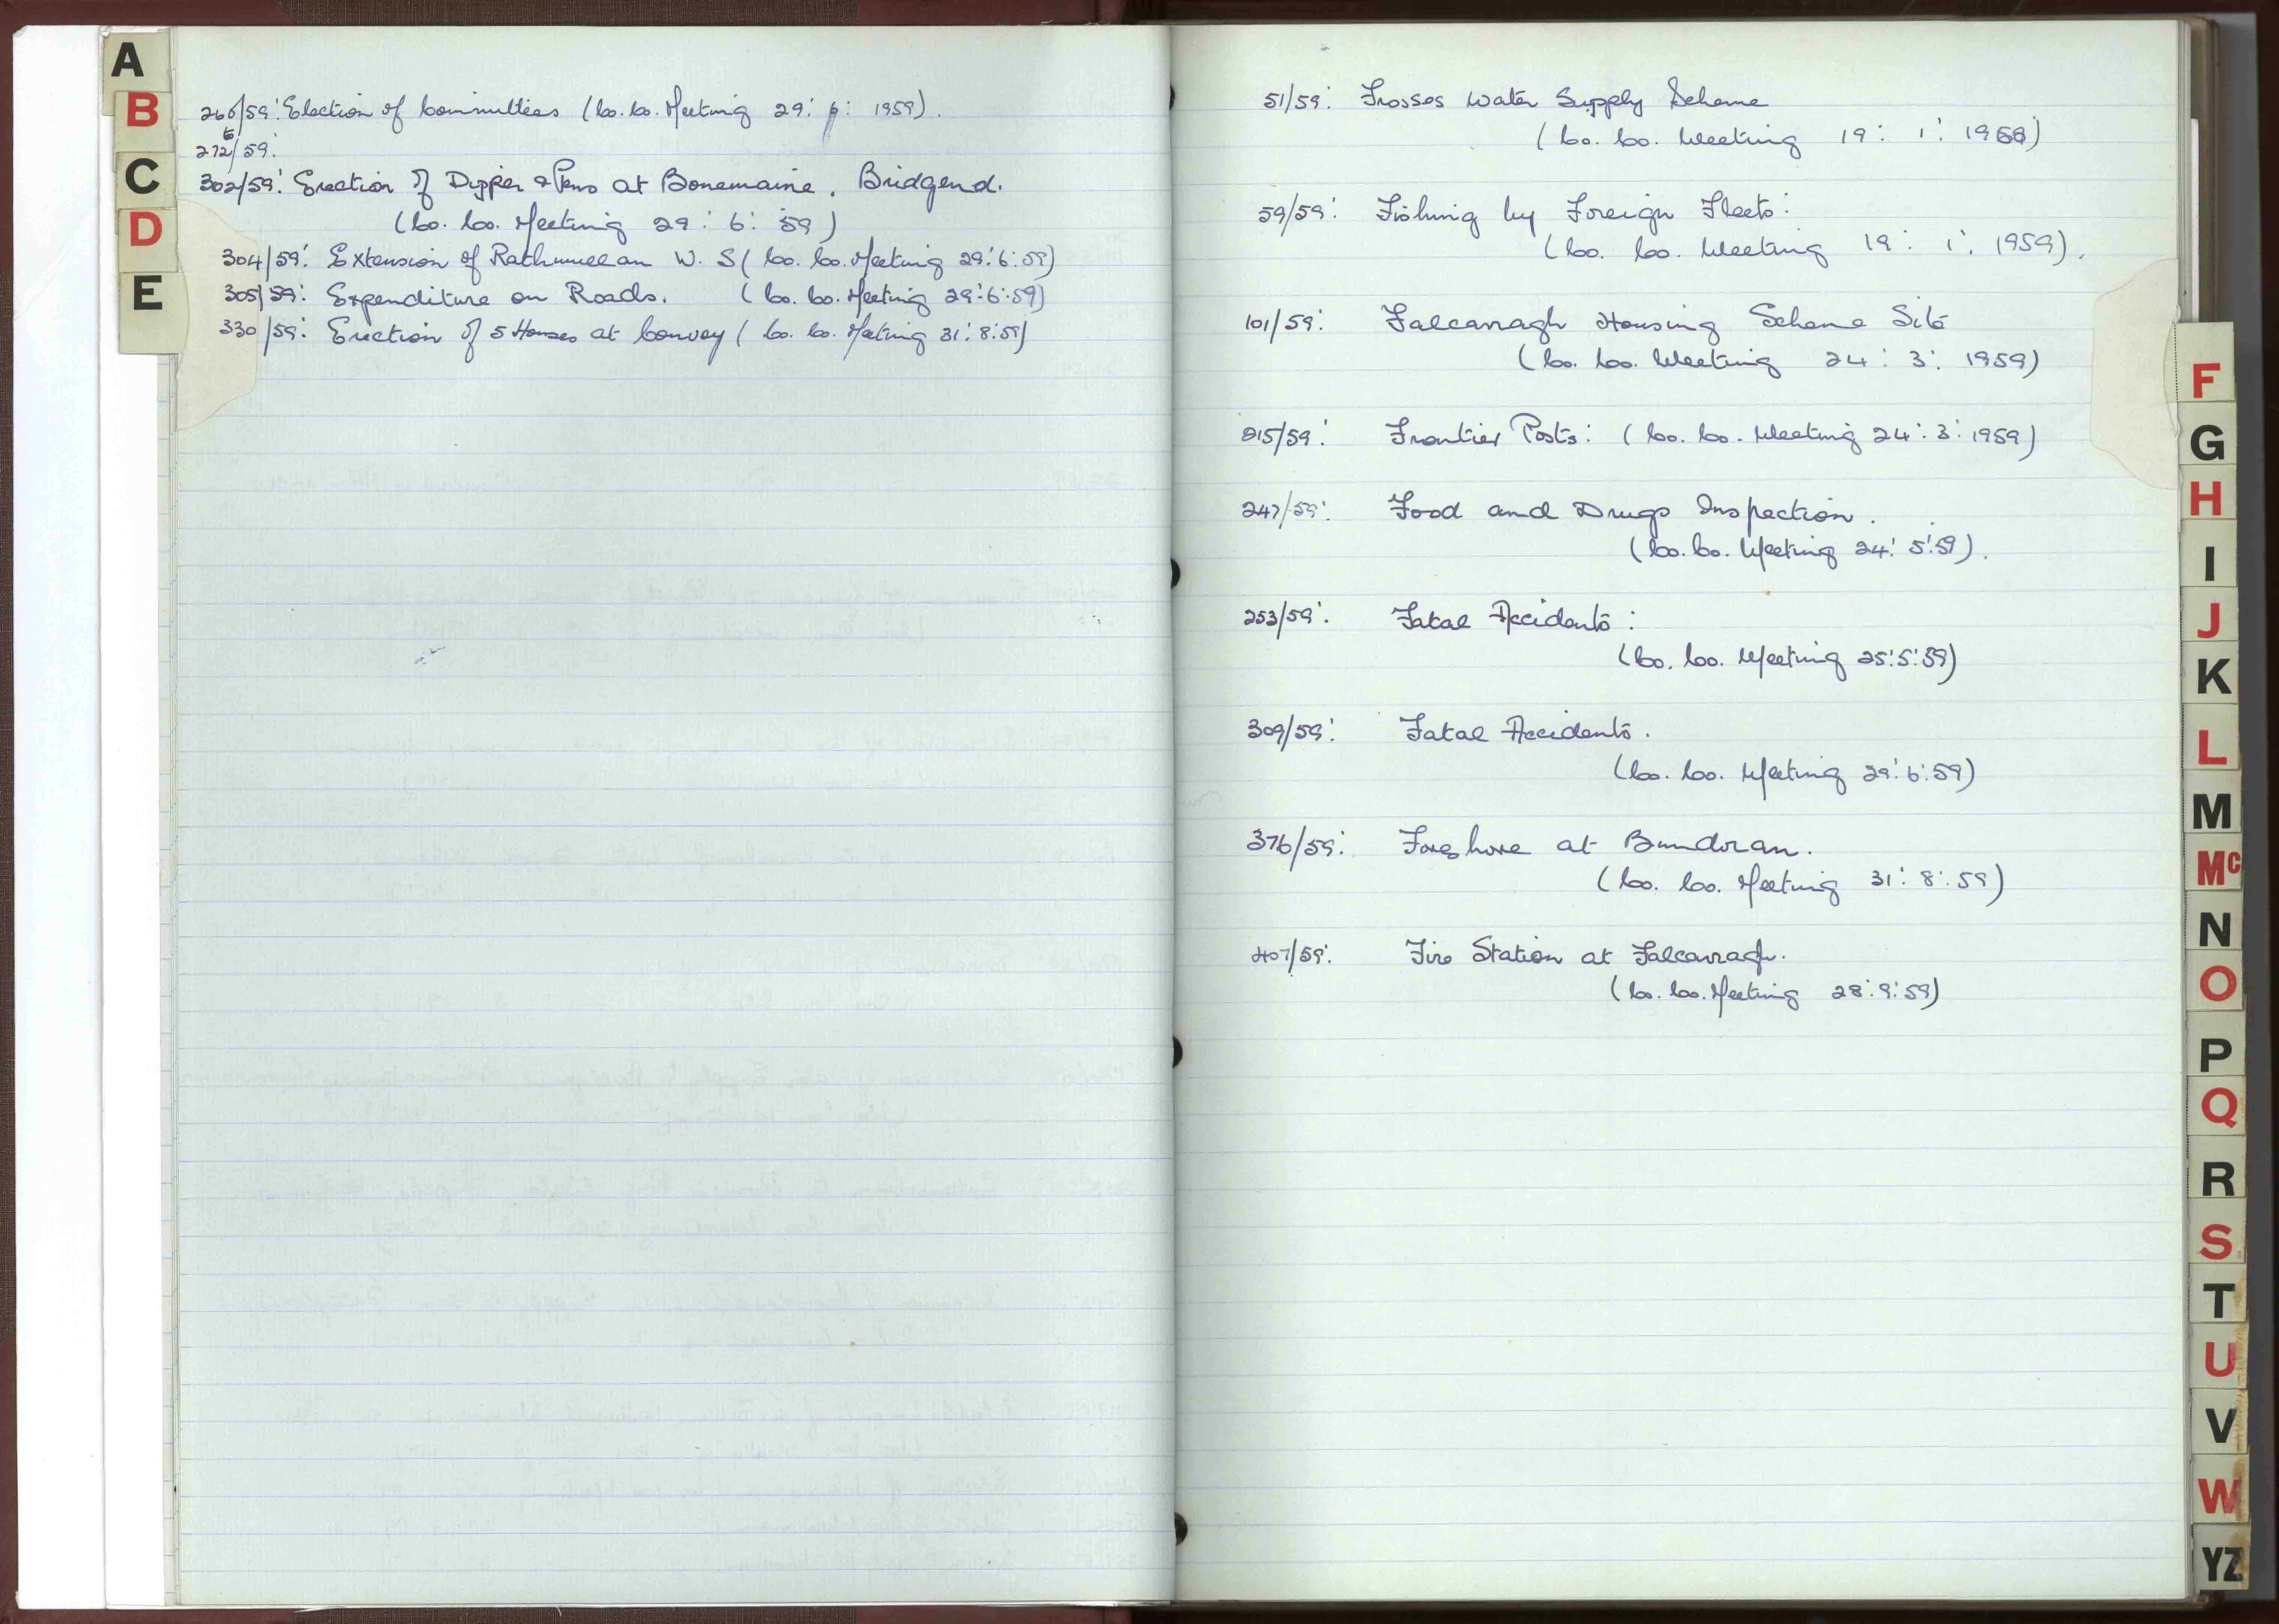 A
B
C
D
E
266/59: Election of Committees (Co. Co. Meeting 29: 6: 1959).
to
272/59:
302/59: Erection of Dipper & Pens at Bonemaine, Bridgend.
(Co. Co. Meeting 29: 6: 59)
304/59: Extension of Rathmullan W. S (Co. Co. Meeting 29:6:59)
305/59: Expenditure on Roads. (Co. Co. Meeting 29:6:59)
330/59: Erection of 5 Houses at Convoy (Co. Co. Meeting 31:8:59)
51/59: Frosses Water Supply Scheme
(Co. Co. Meeting 19: 1: 1959)
59/59: Fishing by Foreign Fleets:
(Co. Co. Meeting 19: 1: 1959).
101/59: Falcarragh Housing Scheme Site
(Co. Co. Meeting 24: 3: 1959)
215/59: Frontier Posts: (Co. Co. Meeting 24: 3: 1959)
247/59: Food and Drugs Inspection.
(Co. Co. Meeting 24: 5:59).
253/59: Fatal Accidents:
(Co. Co. Meeting 25:5:59)
309/59: Fatal Accidents.
(Co. Co. Meeting 29:6:59)
376/59: Foreshore at Bundoran.
(Co. Co. Meeting 31: 8: 59)
407/59: Fire Station at Falcarragh.
(Co. Co. Meeting 28:9:59)
F
G
H
I
J
K
L
M
Mc
N
O
P
Q
R
S
T
U
V
W
YZ